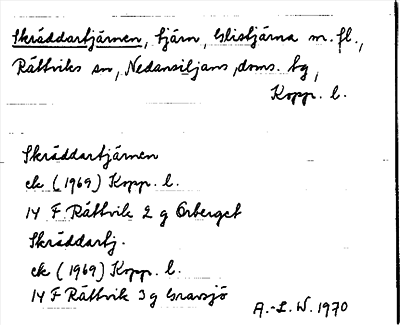 Skräddartjärnen, tjärn, Glistjärna m. fl.,
Rättviks sn, Nedansiljans doms. tg,
Kopp. l.
Skräddartjärnen
ek (1969) Kopp. l.
14 F Rättvik 2 g Örberget
Skräddartj.
ek (1969) Kopp. l.
14 F Rättvik 3 g Gravsjö
A.-L. W. 1970